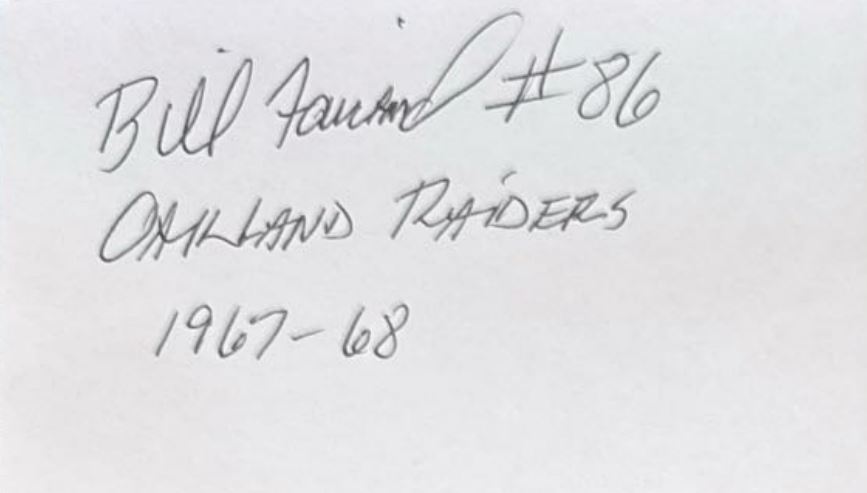 Bill Fairband #86
OAKLAND RAIDERS
1967-68